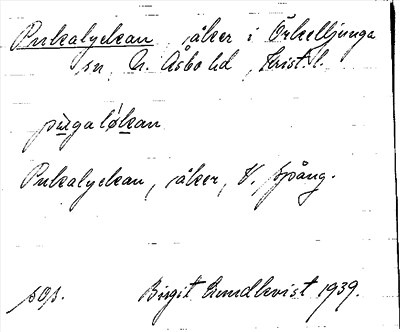 Pukalyckan, åker i Örkelljunga
sn, N. Åsbo hd, Krist. l.
pugaløkan
Pukalyckan, åker, V. Spång.
sop. Birgit Lundkvist 1939.